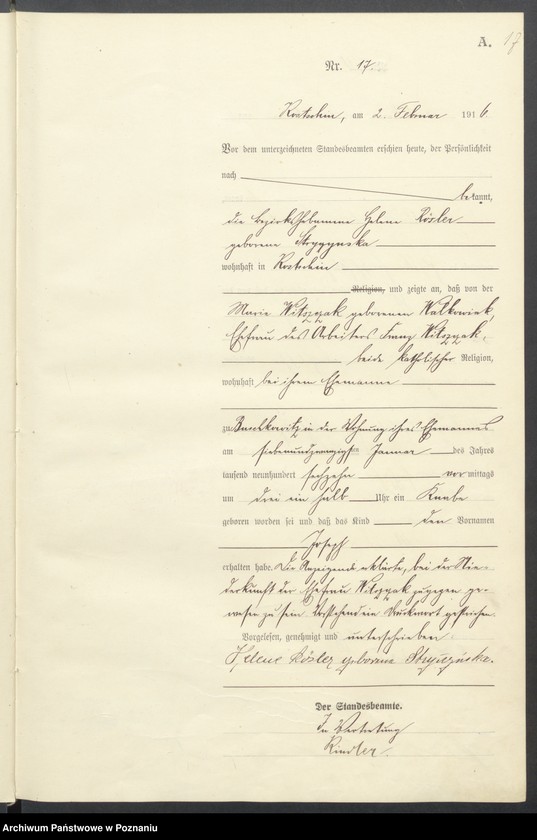 A. 17
Nr. 17.
Kostschin, am 2. Februar 1916
Vor dem unterzeichneten Standesbeamten erschien heute, der Persönlichkeit
nach
bekannt,
die Bezirkshebamme Helene Rösler
geborene
wohnhaft in Kostschin
Religion, und zeigte an, daß von der
Marie Witczak geborenen Walkowiak,
Ehefrau des Arbeiters Franz Witczak,
beide katholischer Religion,
wohnhaft bei ihrem Ehemanne
zu in der Wohnung ihres Ehemannes
am siebenundzwanzigsten Januar des Jahres
tausend neunhundert sechzehn vormittags
um drei ein halb Uhr ein Knabe
geboren worden sei und daß das Kind den Vornamen
Joseph
erhalten habe. Die Anzeigende erklärte, bei der Nie-
derkunft der Ehefrau Witczak zugegen ge-
wesen zu sein. Vorstehend ein Druckwort gestrichen.
Vorgelesen, genehmigt und unterschrieben
Helene Rösler geborene
Der Standesbeamte.
In Vertretung
Archiwum Państwowe w Poznaniu